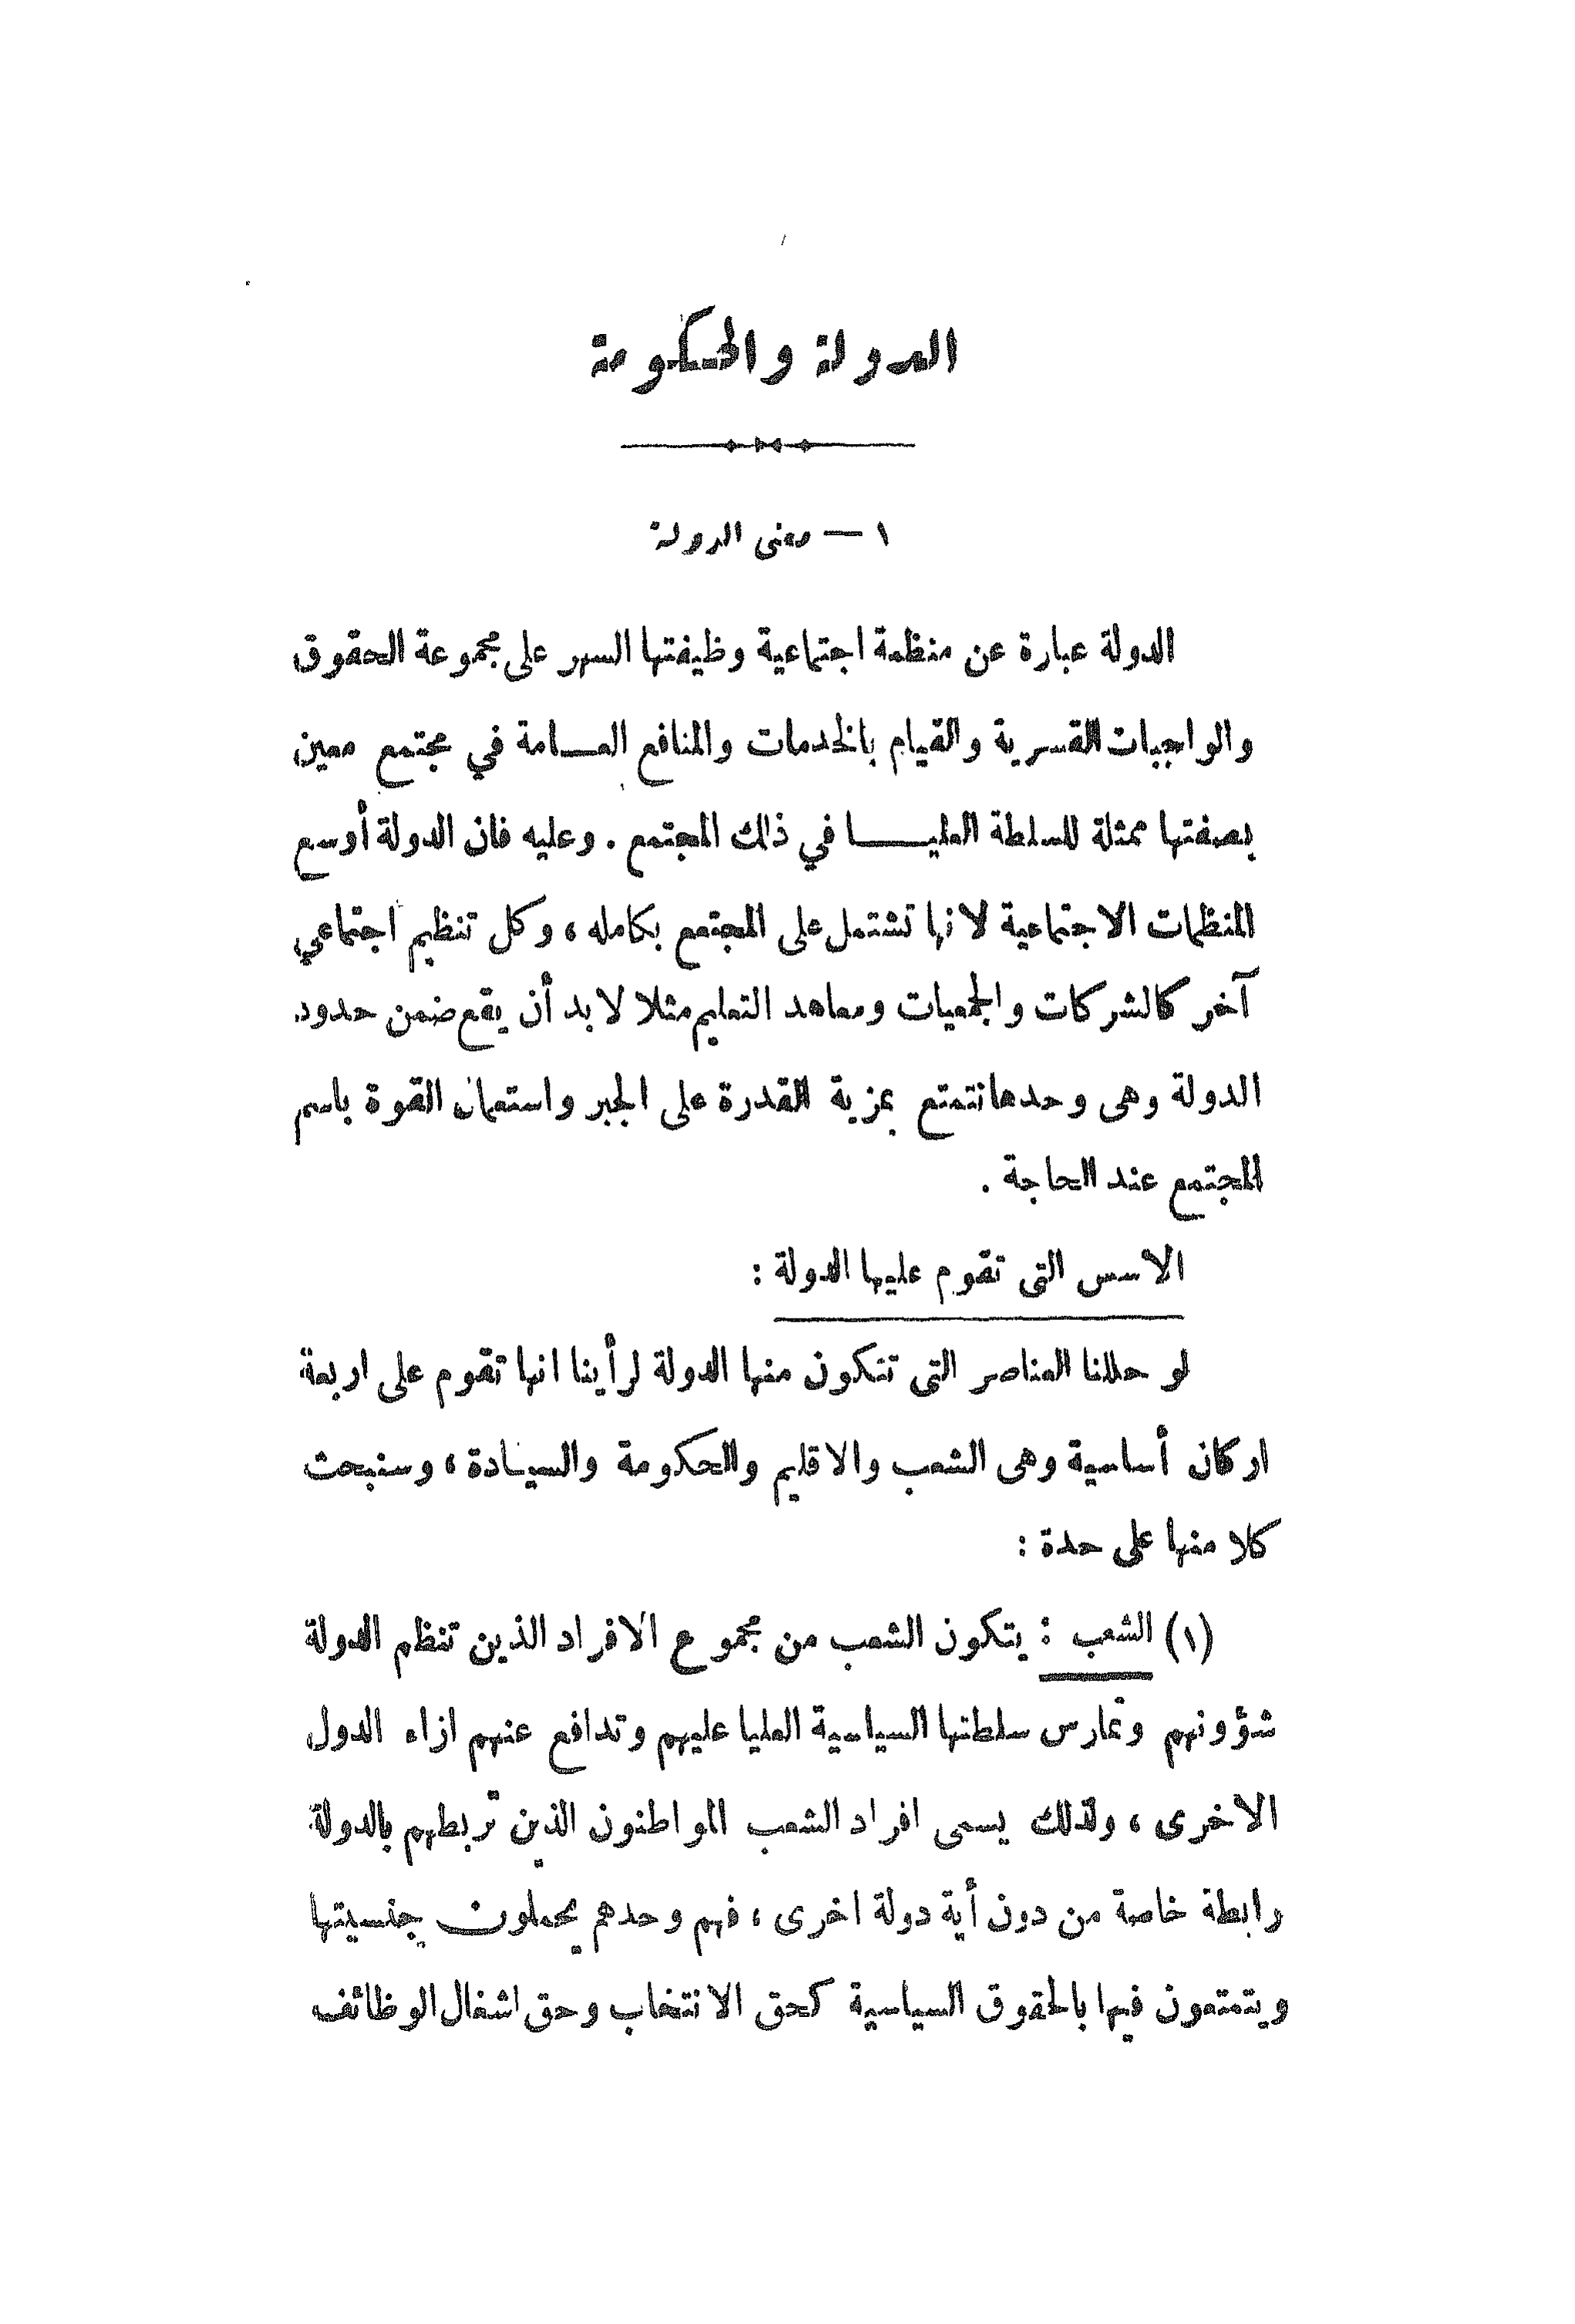 الدولة والحكومة
١ — معنى الدولة
الدولة عبارة عن منظمة اجتماعية وظيفتها السهر على مجموعة الحقوق
والواجبات القسرية والقيام بالخدمات والمنافع العـامة في مجتمع معين
بصفتها ممثلة للسلطة العليـــا في ذلك المجتمع . وعليه فان الدولة أوسع
المنظمات الاجتماعية لانها تشتمل على المجتمع بكامله ، وكل تنظيم اجتماعي
آخر كالشركات والجمعيات ومعاهد التعليم مثلا لا بد أن يقع ضمن حدود
الدولة وهى وحدها تتمتع بمزية القدرة على الجبر واستعمال القوة باسم
المجتمع عند الحاجة .
الاسس التى تقوم عليها الدولة :
لو حللنا العناصر التى تتكون منها الدولة لرأينا انها تقوم على اربعة
اركان أساسية وهى الشعب والاقليم والحكومة والسيـادة ، وسنبحث
كلا منها على حدة :
(١) الشعب : يتكون الشعب من مجموع الافراد الذين تنظم الدولة
شؤونهم وتمارس سلطتها السياسية العليا عليهم وتدافع عنهم ازاء الدول
الاخرى ، ولذلك يسمى افراد الشعب المواطنون الذين تربطهم بالدولة
رابطة خاصة من دون أية دولة اخرى ، فهم وحدهم يحملون جنسيتها
ويتمتعون فيها بالحقوق السياسية كحق الانتخاب وحق اشغال الوظائف